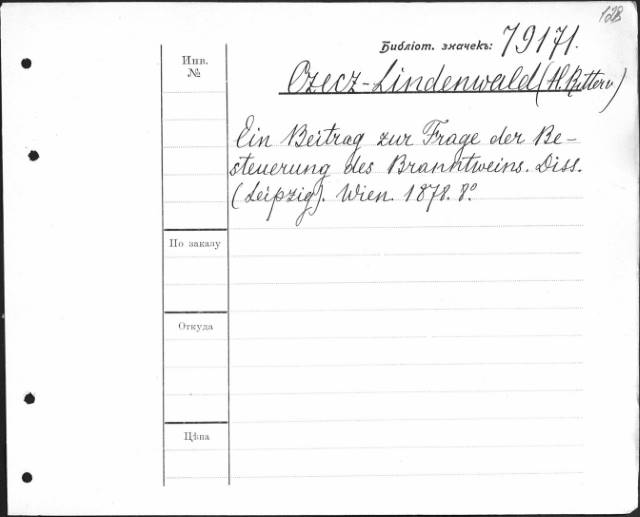 128
Библіот. значекъ: 79171.
Инв.
№
Czecz-Lindenwald (H. Ritter v)
Ein Beitrag zur Frage der Be-
steuerung des Branntweins. Diss.
(Leipzig). Wien. 1878. 8°
По заказу
Откуда
Цѣна